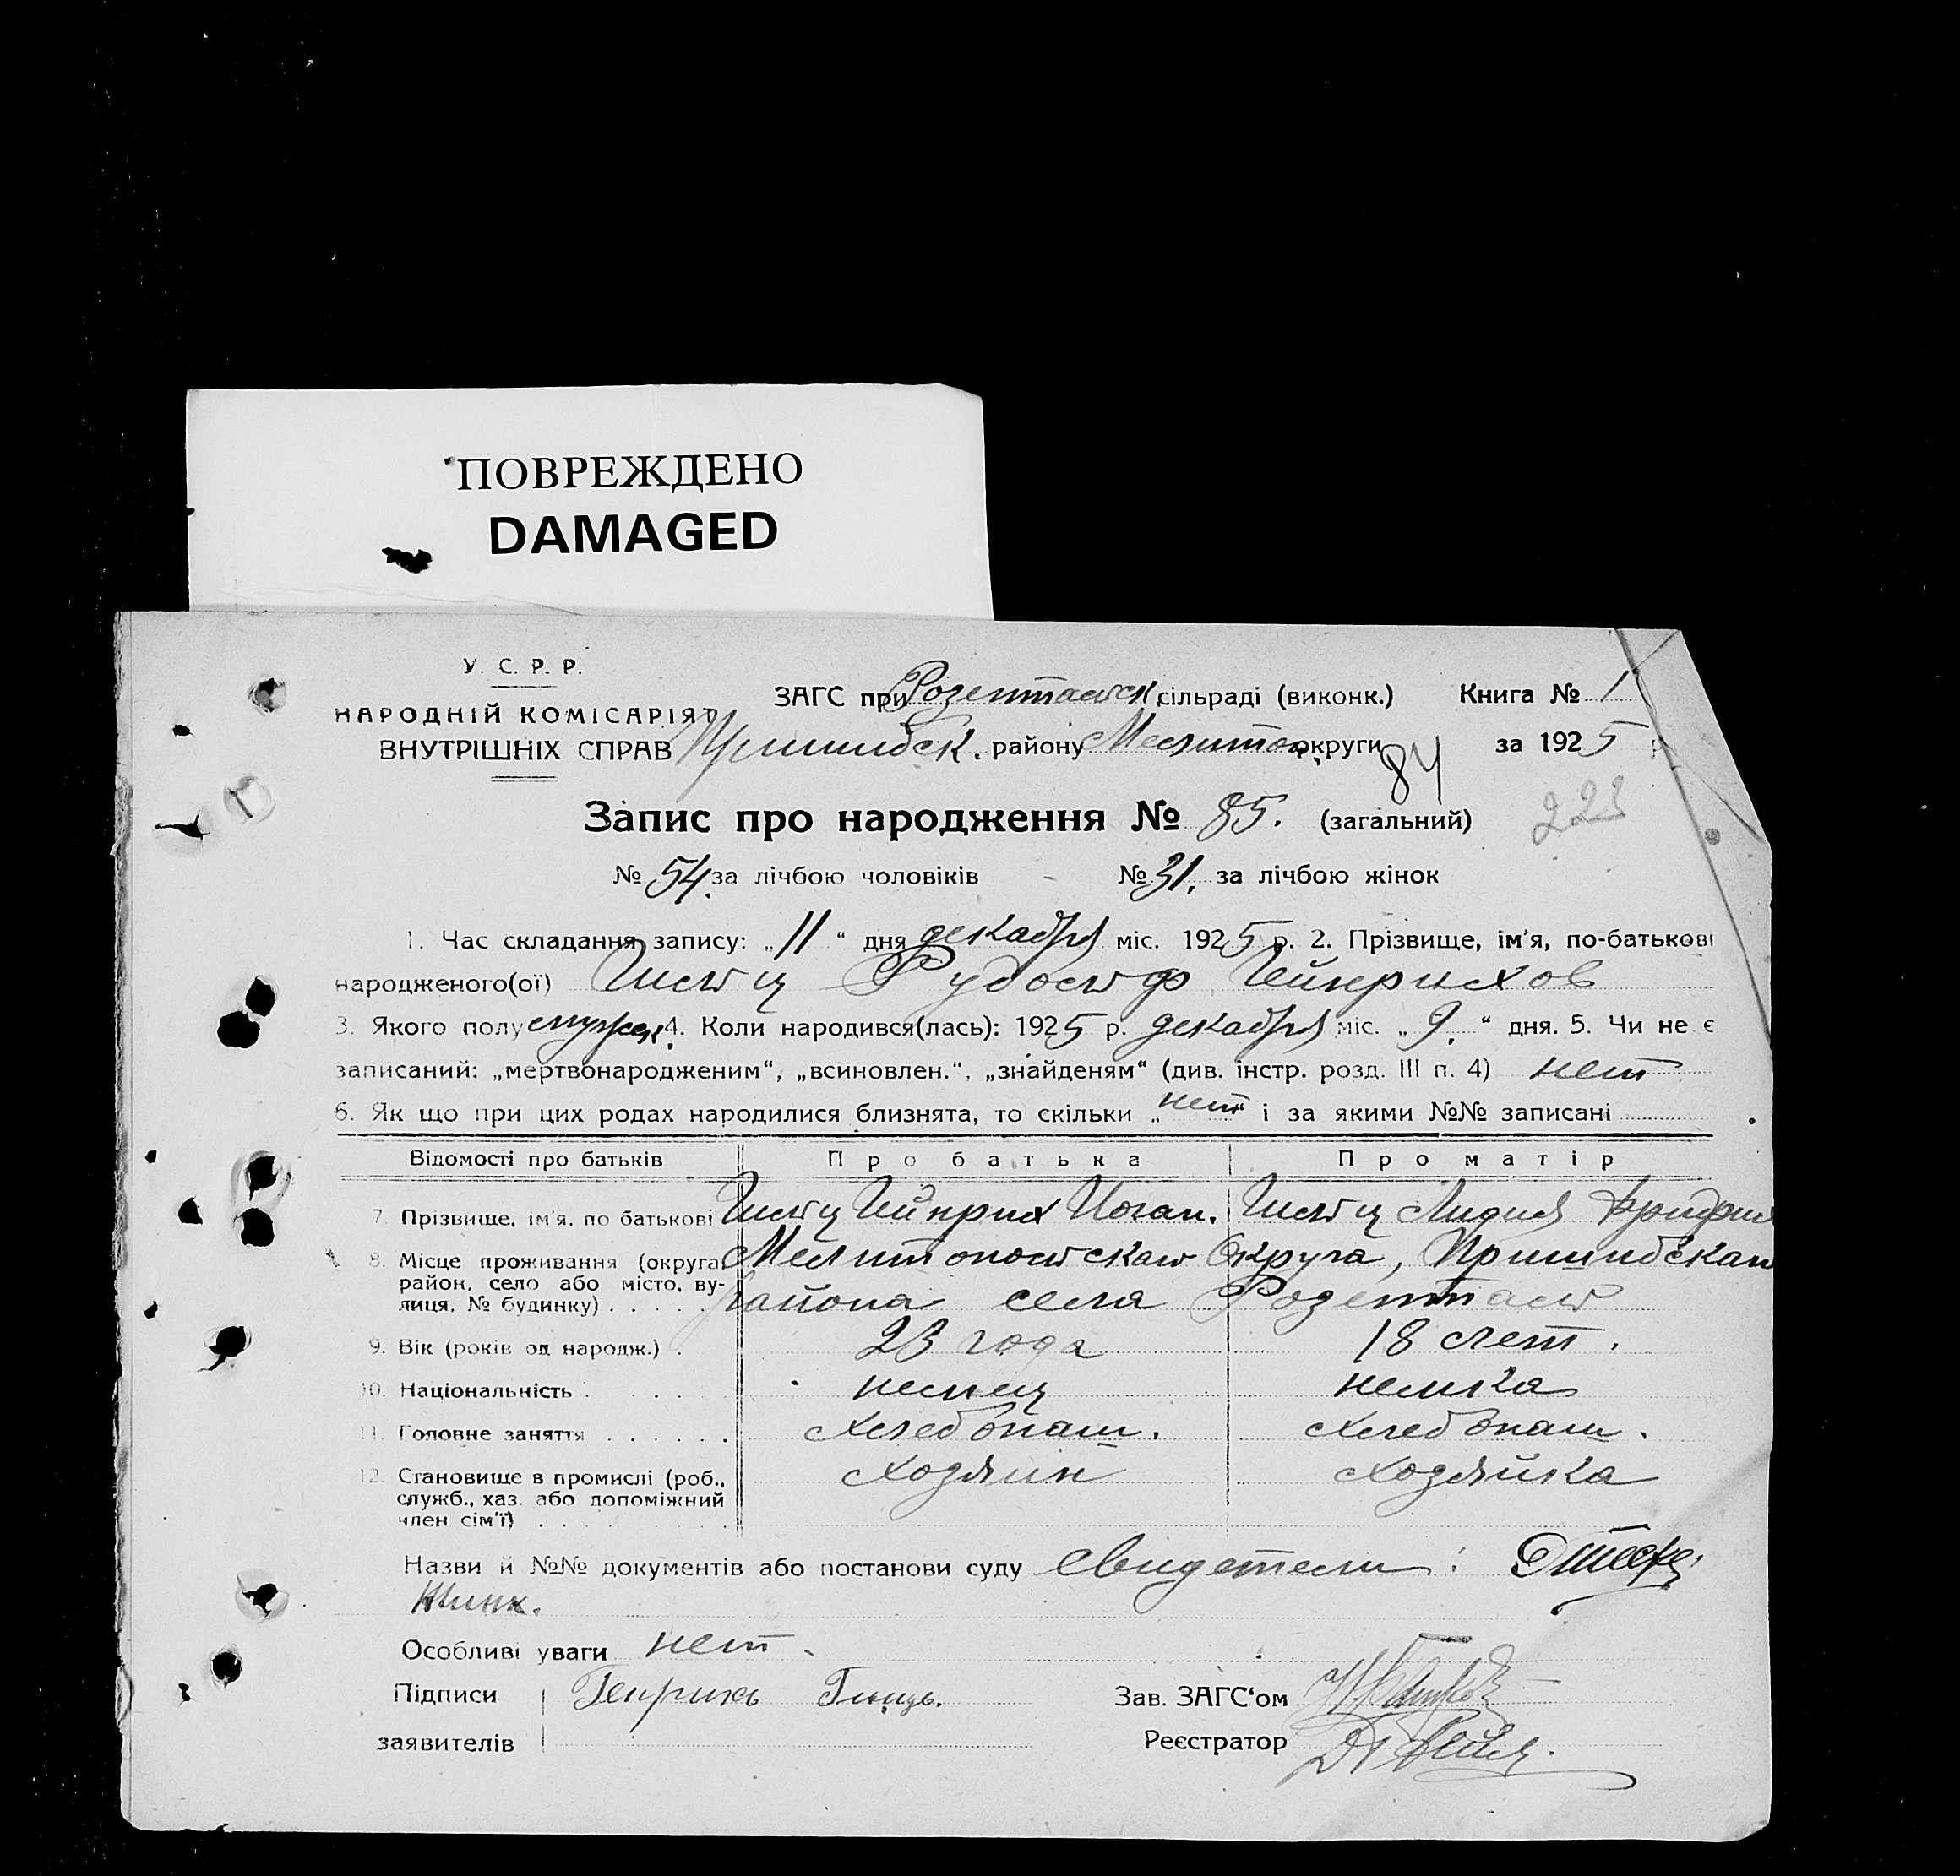 ПОВРЕЖДЕНО
DAMAGED
У. С. Р. Р.
НАРОДНІЙ КОМІСАРІЯТ
ВНУТРІШНІХ СПРАВ
ЗАГС при Розентальск. сільраді (виконк.) Книга № 1
Пришибск. району Мелитоп. округи за 1925 р
84
Запис про народження № 85. (загальний)
223
№ 54. за лічбою чоловіків № 31. за лічбою жінок
1. Час складання запису: „11“ дня декабря міс. 1925 р. 2. Прізвище, ім'я, по-батькові
народженого(ої) Гильц Рудольф Гейнрихов
3. Якого полу мужск. 4. Коли народився(лась): 1925 р. декабря міс. „9.“ дня. 5. Чи не є
записаний: „мертвонародженим“, „всиновлен.“, „знайденям“ (див. інстр. розд. III п. 4) нет
6. Як що при цих родах народилися близнята, то скільки „нет“ і за якими №№ записані
Відомості про батьків Про батька Про матір
7. Прізвище, ім'я, по батькові Гильц Гейнрих Иоган. Гильц Лидия Фридри
8. Місце проживання (округа, район, село або місто, вулиця, № будинку) Мелитопольская Округа, Пришибская
Района села Розенталь
9. Вік (років од народж.) 23 года 18 лет.
10. Національність немец немка
11. Головне заняття хлебопаш. хлебопаш.
12. Становище в промислі (роб., хозяин хозяйка
служб., хаз. або допоміжний
член сім'ї)
Назви й №№ документів або постанови суду свидетели:
Особливі уваги нет.
Підписи Генрих Гильц. Зав. ЗАГС‘ом
заявителів Реєстратор